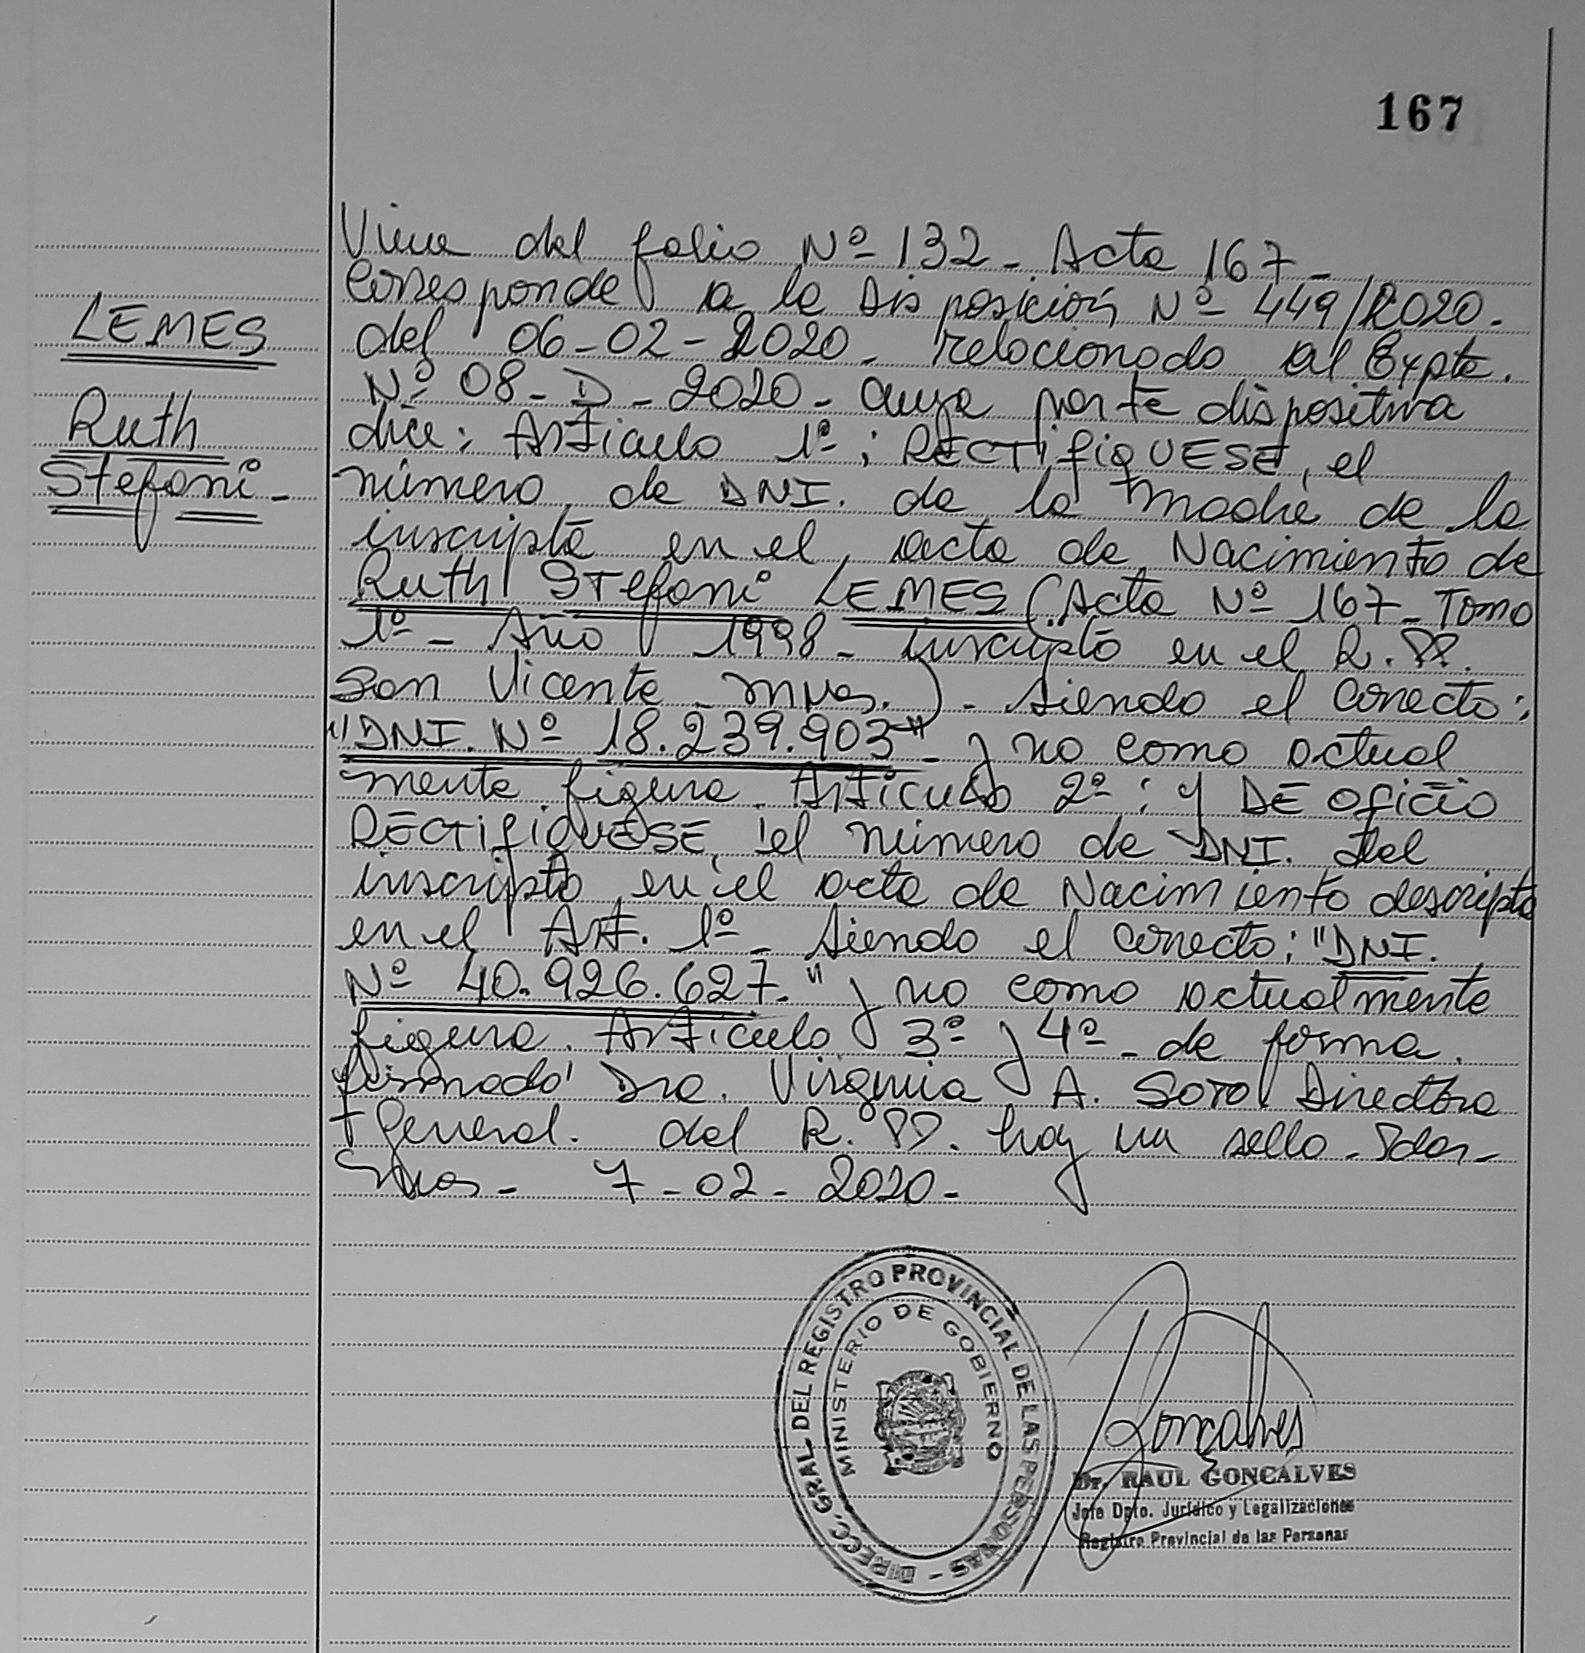 167
LEMES
Ruth
Stefani-
Viene del folio Nº 132 - Acta 167 -
Corresponde a la Disposición Nº 449/2020.
del 06-02-2020 - relacionado al Expte.
Nº 08 - D - 2020 - cuya parte dispositiva
dice: Artículo 1º: RECTIFIQUESE, el
número de DNI. de la madre de la
inscripta en el acta de Nacimiento de
Ruth Stefani LEMES (Acta Nº 167 - Tomo
1º - Año 1998 - inscripto en el R.PP.
San Vicente Mnes.) - Siendo el correcto:
"DNI. Nº 18.239.903" - y no como actual
mente figura. Artículo 2º: y DE oficio
RECTIFIQUESE, el número de DNI. del
inscripto en el acta de Nacimiento descripta
en el Art. 1º - Siendo el correcto: "DNI.
Nº 40.926.627." y no como actualmente
figura. Artículo 3º y 4º - de forma.
firmado Dra. Virginia A. Soto Directora
General. del R.PP. hay un sello - Pdas -
Mnes - 7-02-2020 -
DIRECC. GRAL. DEL REGISTRO PROVINCIAL DE LAS PERSONAS -
MINISTERIO DE GOBIERNO
Gonçalves
Dr. RAUL GONCALVES
Jefe Dpto. Jurídico y Legalizaciones
Registro Provincial de las Personas